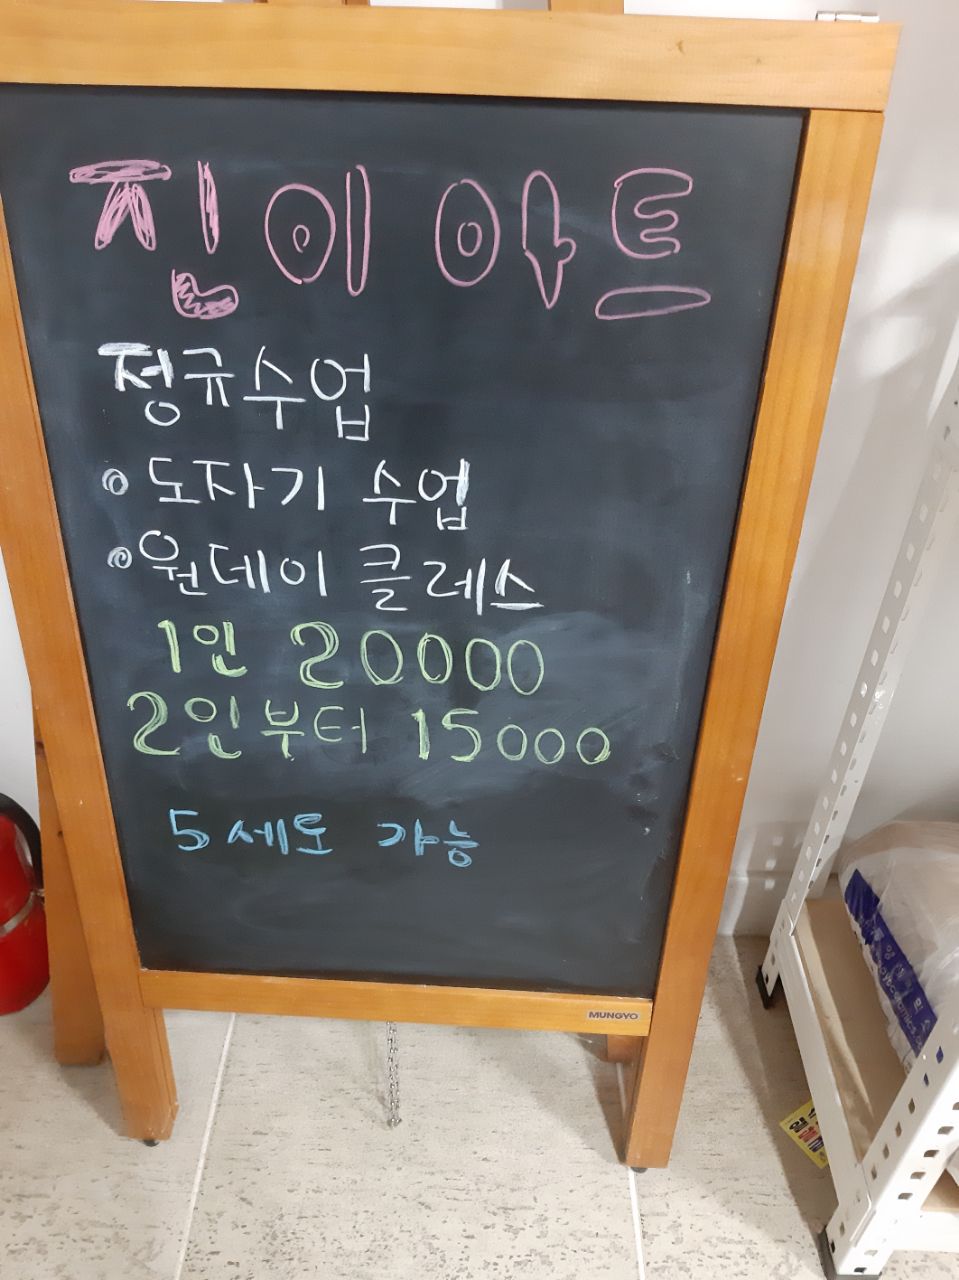 진이아트
정규수업
도자기 수업
원데이 클레스
1인 20000
2인부터 15000
5세도 가능
MUNGYO